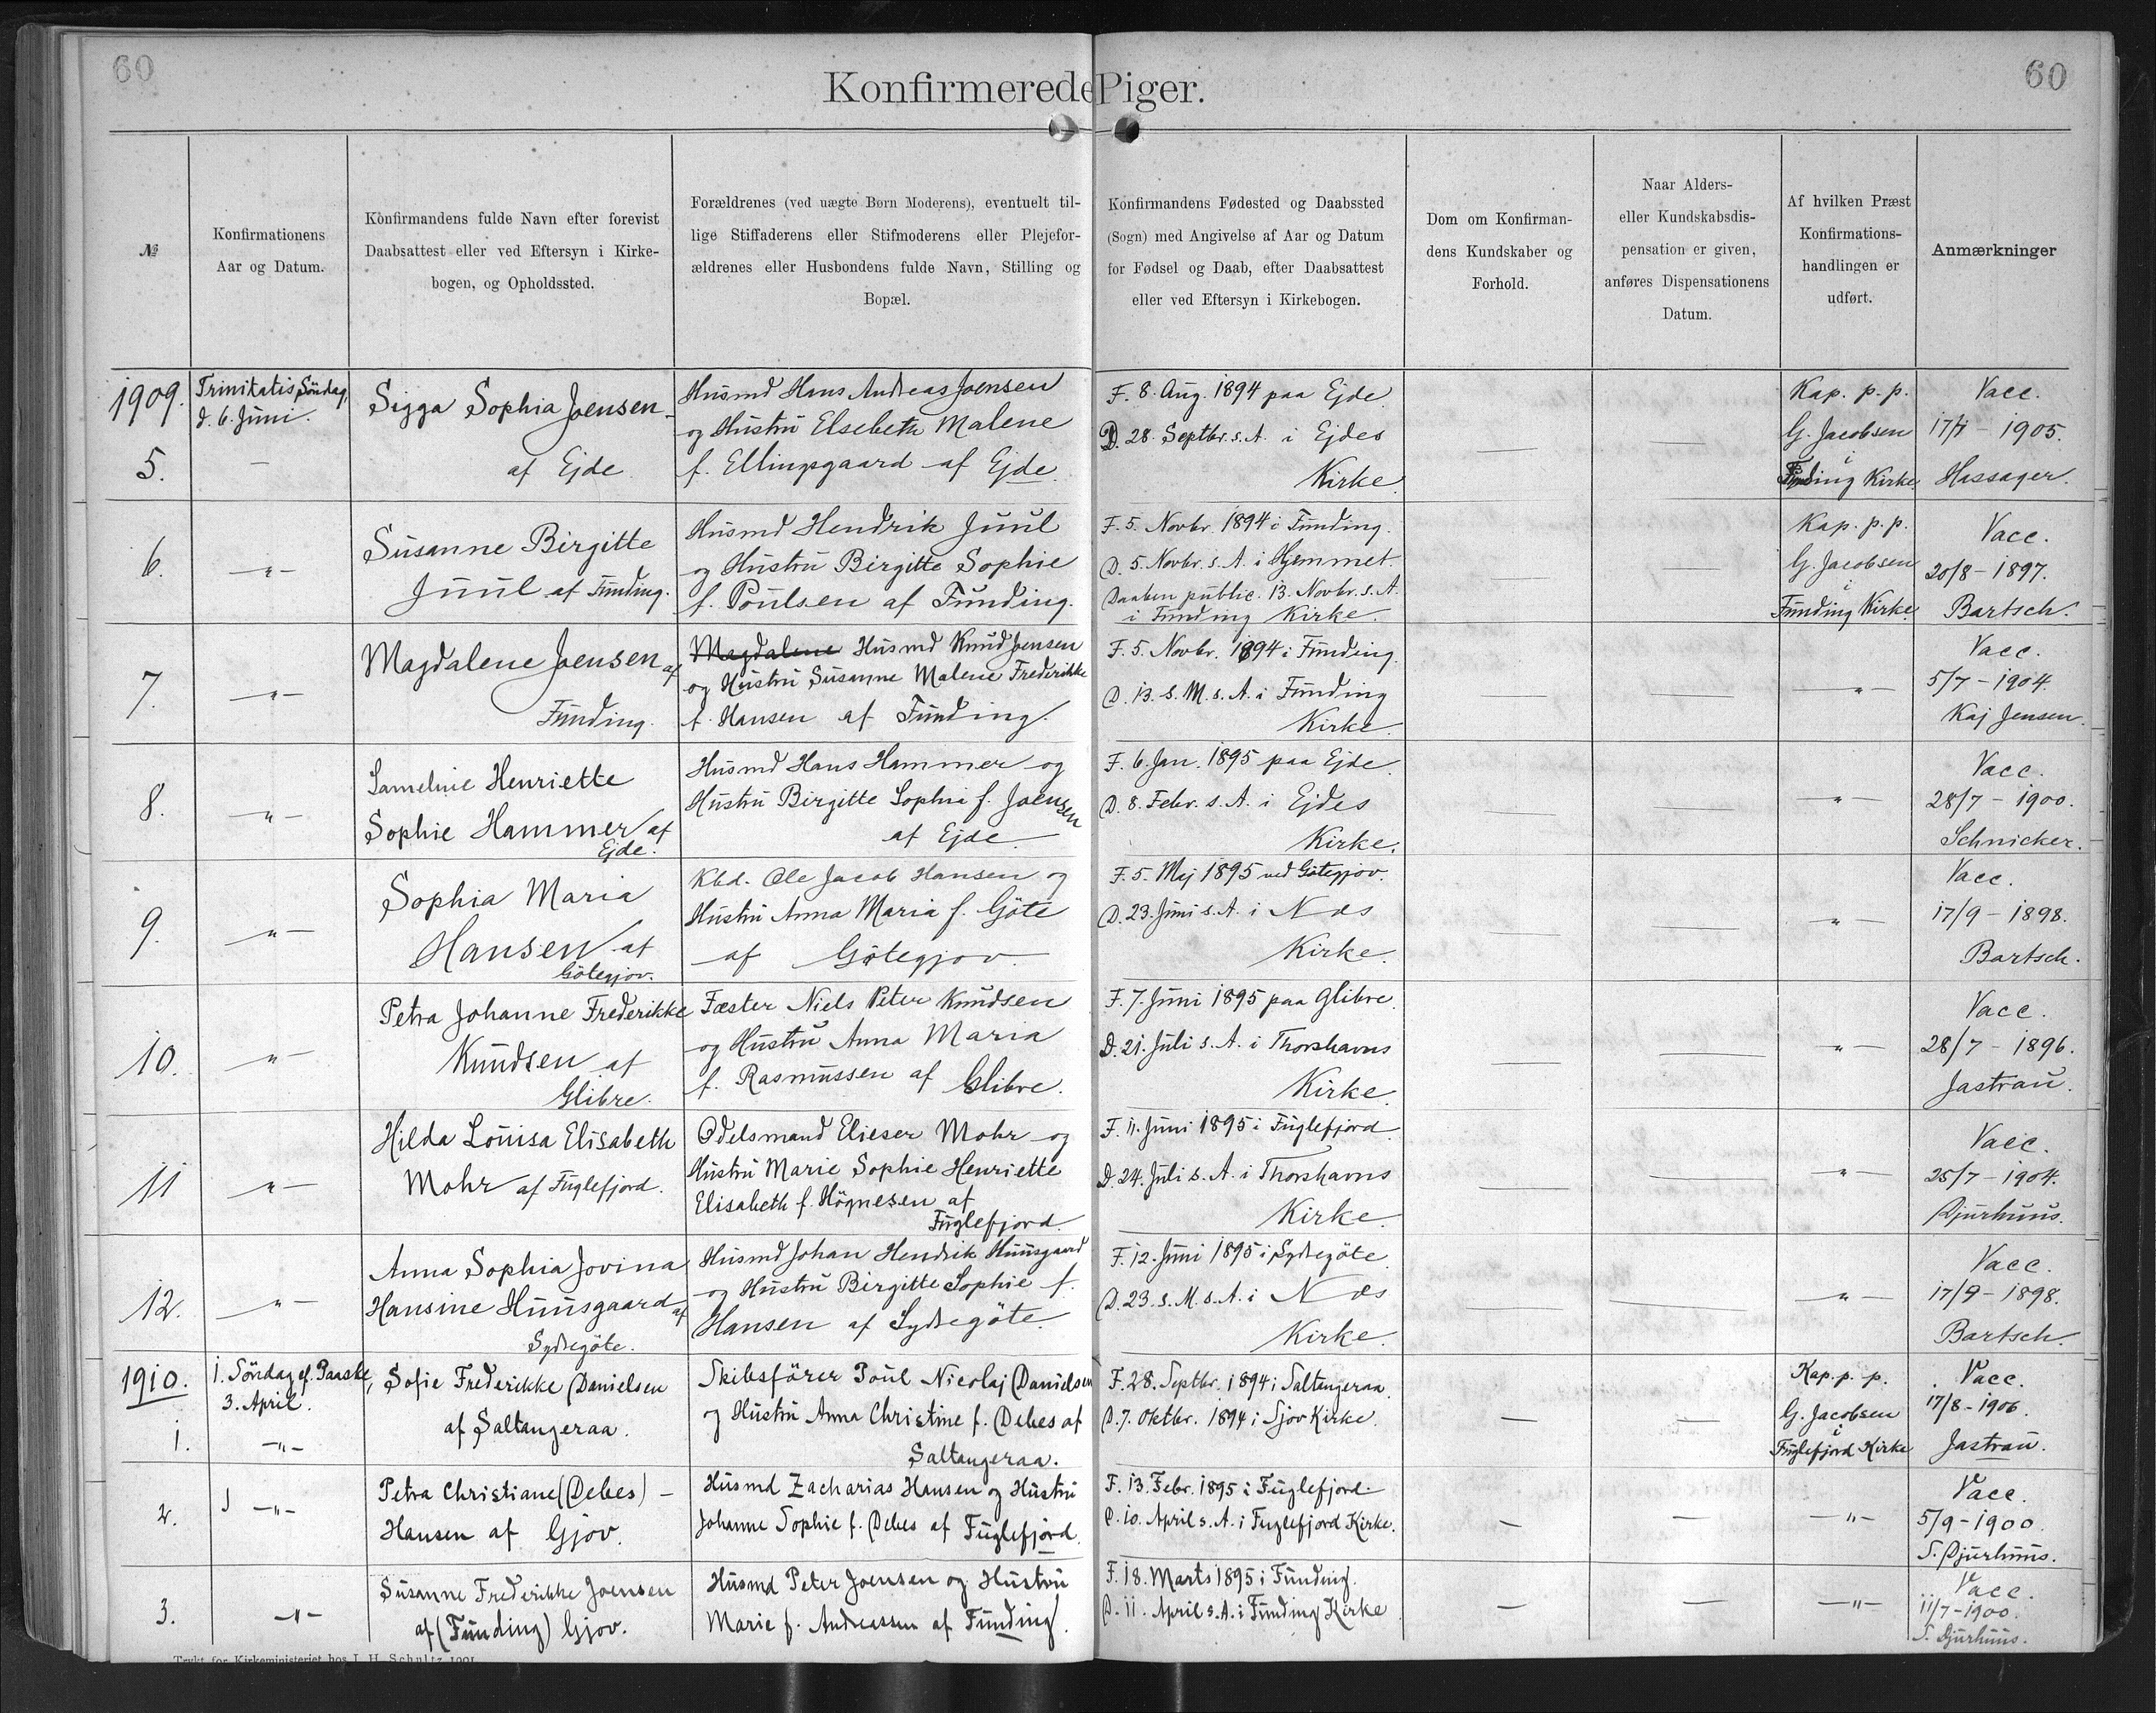 60
60
Konfirmerede Piger.
№
Konfirmationens
Aar og Datum.
Konfirmandens fulde Navn efter forevist
Daabsattest eller ved Eftersyn i Kirke-
bogen, og Opholdssted.
Forældrenes (ved uægte Børn Moderens), eventuelt til-
lige Stiffaderens eller Stifmoderens eller Plejefor-
ældrenes eller Husbondens fulde Navn, Stilling og
Bopæl.
Konfirmandens Fødested og Daabssted
(Sogn) med Angivelse af Aar og Datum
for Fødsel og Daab, efter Daabsattest
eller ved Eftersyn i Kirkebogen.
Dom om Konfirman-
dens Kundskaber og
Forhold.
Naar Alders-
eller Kundskabsdis-
pensation er given,
anføres Dispensationens
Datum.
Af hvilken Præst
Konfirmations-
handlingen er
udført.
Anmærkninger
1909.
5.
Trinitatis Söndag
d. 6. Juni.
—
Sigga Sophia Joensen
af Ejde
Husmd Hans Andreas Joensen
og Hustru Elsebeth Malene
f. Ellingsgaard af Ejde.
F. 8. Aug. 1894 paa Ejde
D. 28. Septbr. s. A. i Ejdes
Kirke.
—
—
Kap. p. p.
G. Jacobsen
i
Funding Kirke
Vacc.
– 1905.
Hassager.
6.
—〃—
Susanne Birgitte
Juul af Funding.
Husmd Hendrik Juul
og Hustru Birgitte Sophie
f. Poulsen af Funding.
F. 5. Novbr. 1894 i Funding.
D. 5. Novbr. s. A. i Hjemmet.
Daaben public. 13. Novbr. s. A.
i Funding Kirke.
—
—
Kap. p. p.
G. Jacobsen
i
Funding Kirke
Vacc.
20/8 – 1897.
Bartsch.
7.
—〃—
Magdalene Joensen af
Funding.
Magdalene Husmd Knud Joensen
og Hustru Susanne Malene Frederikke
f. Hansen af Funding.
F. 5. Novbr. 1894 i Funding.
D. 13. s. M. s. A. i Funding
Kirke.
—
—
—〃—
Vacc.
5/7 – 1904.
Kaj Jensen.
8.
—〃—
Sameline Henriette
Sophie Hammer af
Ejde.
Husmd Hans Hammer og
Hustru Birgitte Sophia f. Joensen
af Ejde
F. 6. Jan. 1895 paa Ejde.
D. 8. Febr. s. A. i Ejdes
Kirke.
—
—
—〃—
Vacc.
28/7 – 1900.
Schnicker.
9.
—〃—
Sophia Maria
Hansen af
Götegjov.
Kbd. Ole Jacob Hansen og
Hustru Anna Maria f. Göte
af Götegjov.
F. 5. Maj 1895 ved Götegjov.
D. 23. Juni s. A. i Næs
Kirke.
—
—
—〃—
Vacc.
17/9 – 1898.
Bartsch.
10.
—〃—
Petra Johanne Frederikke
Knudsen af
Glibre.
Fæster Niels Peter Knudsen
og Hustru Anna Maria
f. Rasmussen af Glibre.
F. 7. Juni 1895 paa Glibre
D. 21. Juli s. A. i Thorshavns
Kirke.
—
—
—〃—
Vacc.
28/7 – 1896.
Jastrau.
11
—〃—
Hilda Louisa Elisabeth
Mohr af Fuglefjord.
Odelsmand Elieser Mohr og
Hustru Marie Sophie Henriette
Elisabeth f. Högnesen af
Fuglefjord
F. 11. Juni 1895 i Fuglefjord
D. 24. Juli s. A. i Thorshavns
Kirke.
—
—
—〃—
Vacc.
25/7 – 1904.
Djurhuus.
12.
—〃—
Anna Sophia Jovina
Hansine Huusgaard af
Sydregöte.
Husmd Johan Hendrik Huusgaard
og Hustru Birgitte Sophie f.
Hansen af Sydregöte.
F. 12. Juni 1895 i Sydregöte.
D. 23. s. M. s. A. i Næs
Kirke.
—
—
—〃—
Vacc.
17/9 – 1898.
Bartsch.
1910.
1.
1. Söndag ef. Paaske,
3. April.
—〃—
Sofie Frederikke Danielsen
af Saltangeraa.
Skibsförer Poul Nicolaj Danielsen
og Hustru Anna Christine f. Debes af
Saltangeraa.
F. 28. Septbr. 1894 i Saltangeraa.
D. 7. Oktbr. 1894 i Sjov Kirke.
—
—
Kap. p. p.
G. Jacobsen
i
Fuglefjord Kirke
Vacc.
17/8 – 1906.
Jastrau.
2.
—〃—
Petra Christiane (Debes) –
Hansen af Gjov.
Husmd Zacharias Hansen og Hustru
Johanne Sophie f. Debes af Fuglefjord.
F. 13. Febr. 1895 i Fuglefjord.
D. 10. April s. A. i Fuglefjord Kirke.
—
—
—〃—
Vacc.
5/9 – 1900.
S. Djurhuus.
3.
—〃—
Susanne Frederikke Joensen
af (Funding) Gjov.
Husmd Peter Joensen og Hustru
Marie f. Andreassen af Funding.
F. 18. Marts 1895 i Funding.
D. 11. April s. A. i Funding Kirke
—
—
—〃—
Vacc.
11/7 – 1900.
S. Djurhuus.
Trykt for Kirkeministeriet hos J. H. Schultz 1901